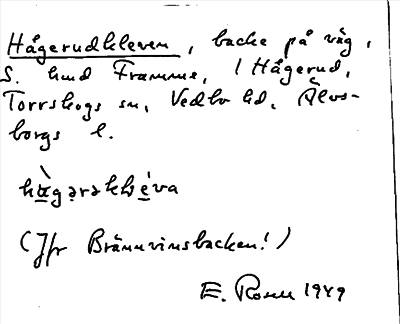 Hågerudkleven, backe på väg,
S. hud Framme, 1 Hågerud,
Torrskogs sn, Vedbo hd, Älvs-
borgs l.
hàgərəkléva
(Jfr Brännvinsbacken!)
E. Rosell 1949